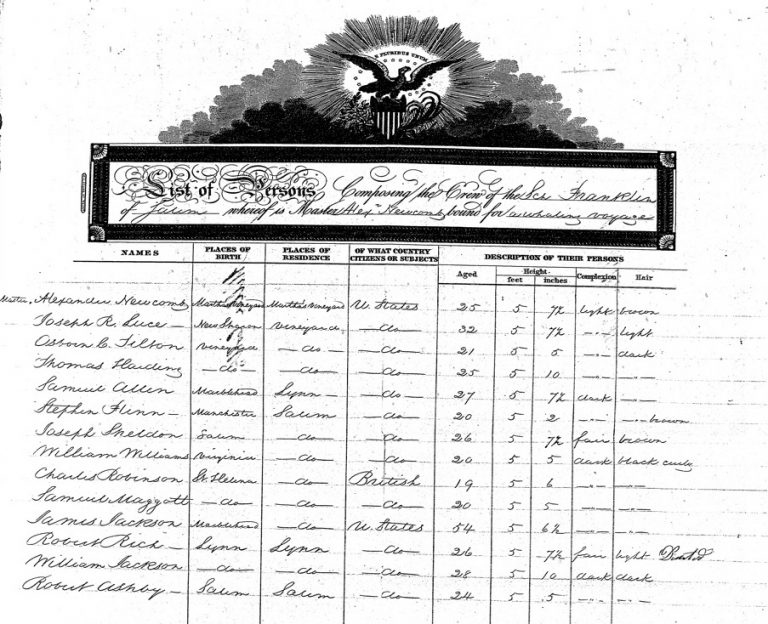 E PLURIBUS UNUM
List of Persons Composing the Crew of the Scr Franklin
of Salem whereof is Master Alexr Newcomb bound for a whaling voyage
NAMES PLACES OF BIRTH PLACES OF RESIDENCE OF WHAT COUNTRY CITIZENS OR SUBJECTS DESCRIPTION OF THEIR PERSONS
Aged Height feet inches Complexion Hair
Master, Alexander Newcomb Martha's Vineyard Martha's Vineyard U. States 25 5 7½ light brown
Joseph R. Luce – New Sharon Vineyard – do – 32 5 7½ – " – light
Osborn C. Tilton Vineyard – do – – do – 21 5 5 – " – dark
Thomas Harding – do – – do – – do – 25 5 10 – " – – " –
Samuel Allen Marblehead Lynn – – do – 27 5 7½ dark – " –
Stephen Flinn – Manchester Salem – do – 20 5 2 – " – – " – brown
Joseph Sheldon Salem – do – – do – 26 5 7½ fair brown
William Williams Virginia – do – – do – 20 5 5 dark black curly
Charles Robinson St. Helena – do – British 19 5 6 – " – – " –
Samuel Maggott – do – – do – – do – 20 5 5 – " – – " –
James Jackson Marblehead – do – U. States 54 5 6½ – " – – " –
Robert Rich – Lynn Lynn – do – 26 5 7½ fair light
William Jackson – do – – do – – do – 28 5 10 dark dark
Robert Ashby – Salem Salem – do – 24 5 5 – " – – " –